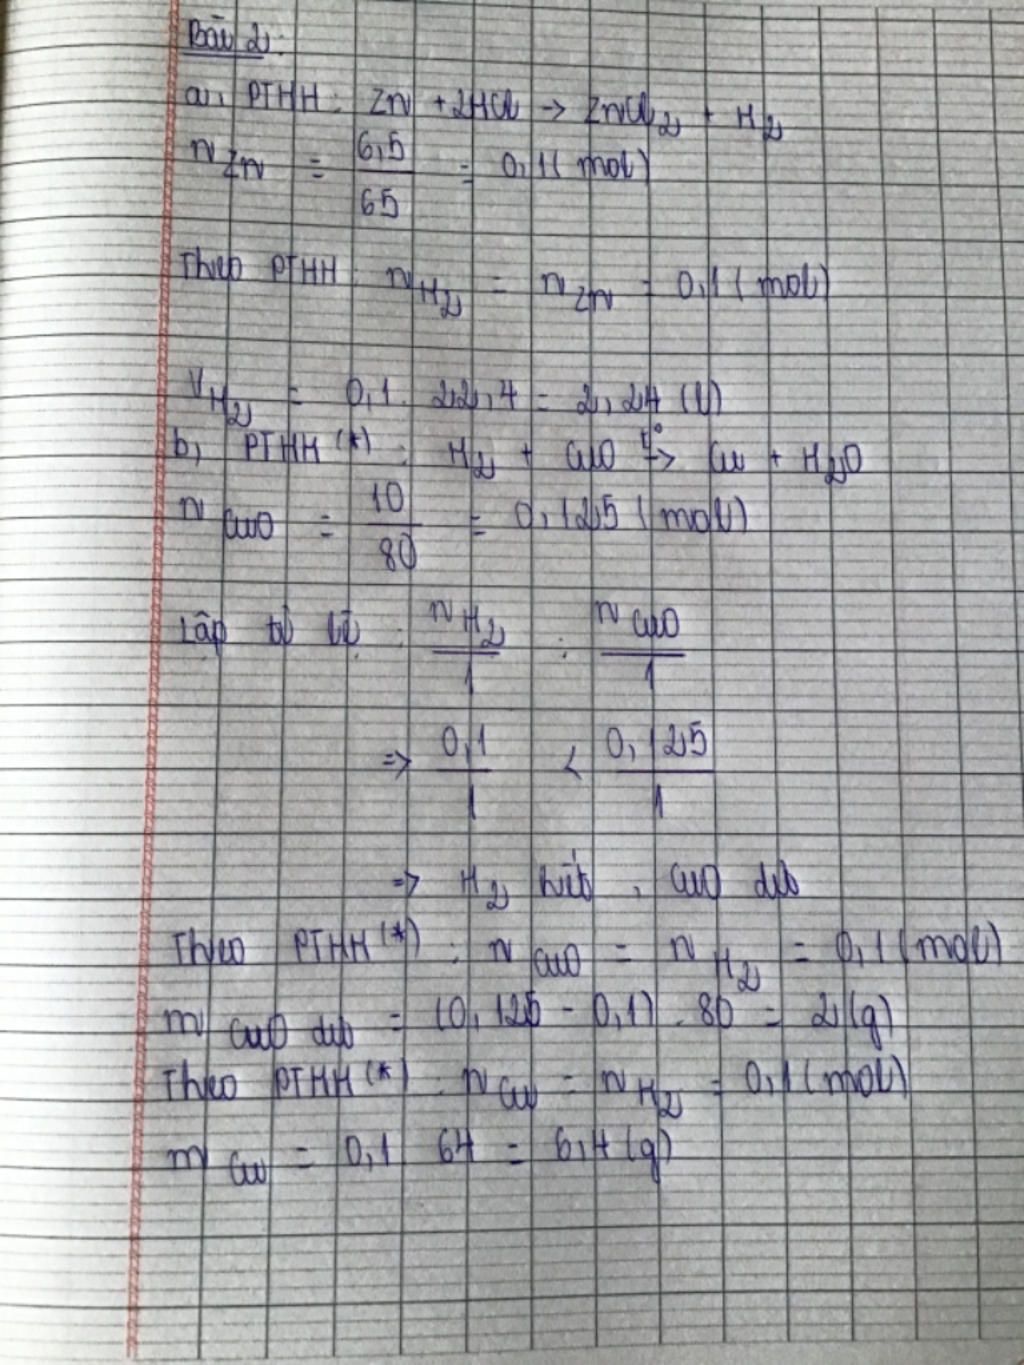 Bài 2:
a, PTHH: Zn + 2HCl → ZnCl₂ + H₂
n Zn = 6,5/65 = 0,1 (mol)
Theo PTHH: n H₂ = n Zn = 0,1 (mol)
V H₂ = 0,1 . 22,4 = 2,24 (l)
b, PTHH (*) : H₂ + CuO t°→ Cu + H₂O
n CuO = 10/80 = 0,125 (mol)
Lập tỉ lệ : n H₂/1 : n CuO/1
⇒ 0,1/1 < 0,125/1
⇒ H₂ hết, CuO dư
Theo PTHH (*) : n CuO = n H₂ = 0,1 (mol)
m CuO dư = (0,125 - 0,1) . 80 = 2 (g)
Theo PTHH (*) : n Cu = n H₂ = 0,1 (mol)
m Cu = 0,1 64 = 6,4 (g)